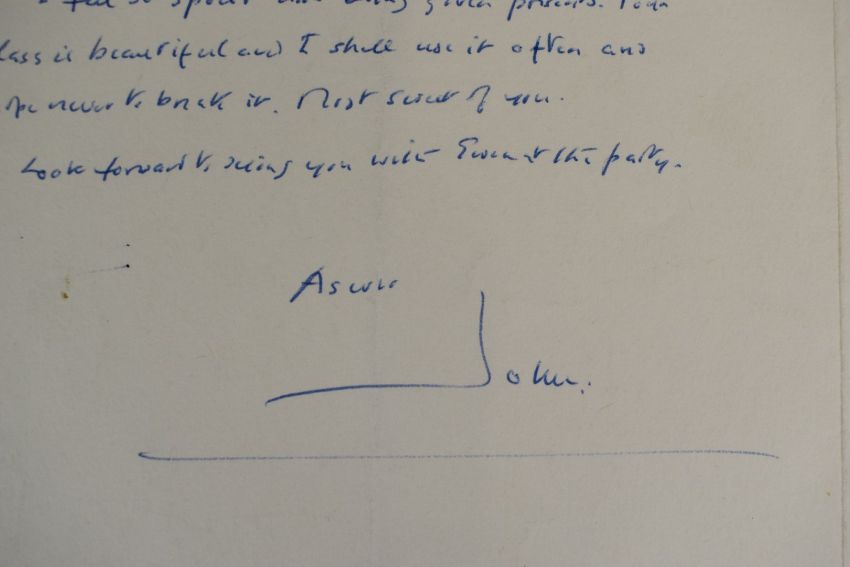 I feel so spoilt and being given presents. Your
lass is beautiful and I shall use it often and
ope never to break it. Most sweet of you.
Look forward to seeing you with at the party.
As ever
John.